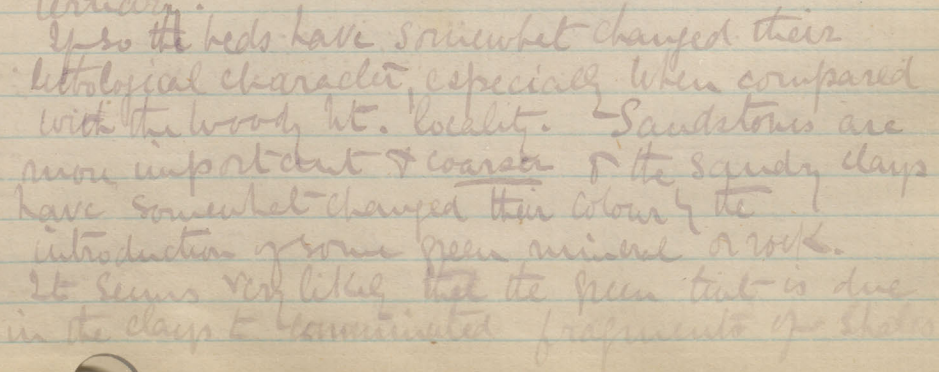 If so the beds have somewhat changed their
lithological character, especially when compared
with the Woody Mt. locality. Sandstones are
more important & coarser & the sandy clays
have somewhat changed their colour by the
introduction of some green mineral or rock.
It seems very likely that the green tint is due
in the clays to comminuted fragments of shales